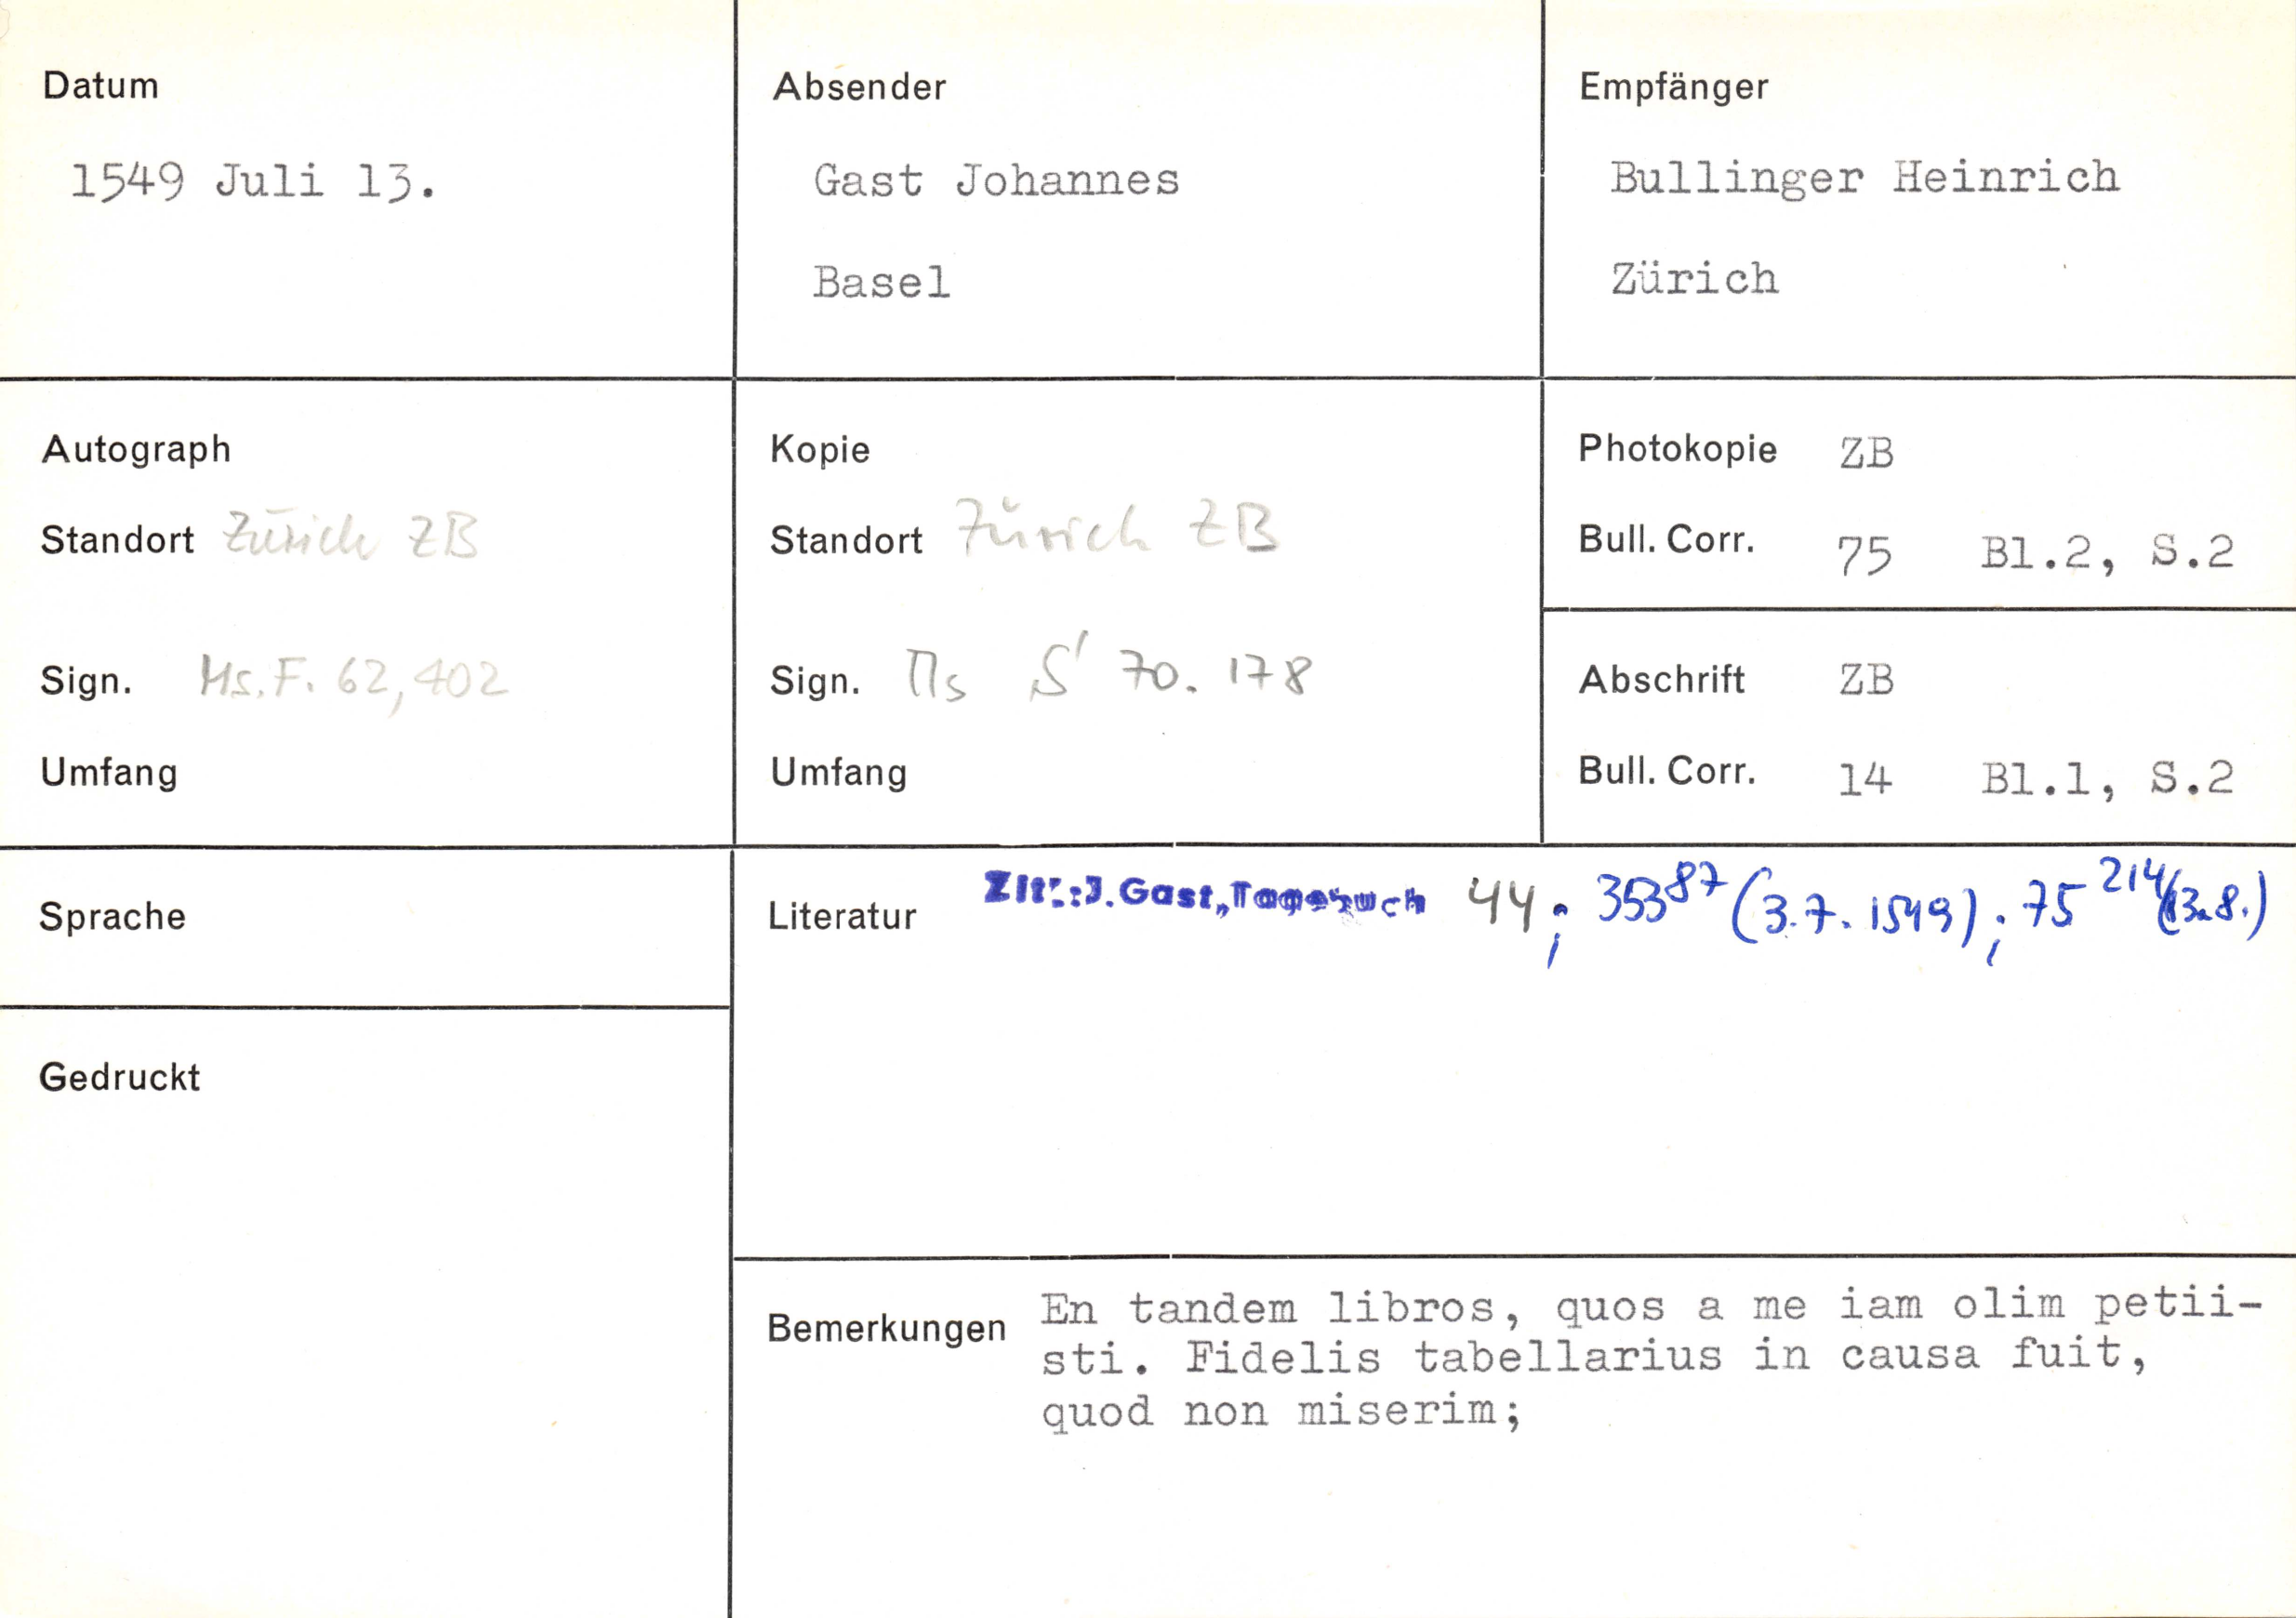 Datum
1549 Juli 13.
Absender
Gast Johannes
Basel
Empfänger
Bullinger Heinrich
Zürich
Autograph
Standort Zürich ZB
Sign. Ms. F. 62, 402
Umfang
Kopie
Standort Zürich ZB
Sign. Ms S 70. 178
Umfang
Photokopie ZB
Bull. Corr. 75 Bl.2, S.2
Abschrift ZB
Bull. Corr. 14 Bl.1, S.2
Sprache
Gedruckt
Literatur Zit.:J.Gast,Tagebuch 44; 353⁸⁷ (3.7.1549); 75²¹⁴ (13.8.)
Bemerkungen En tandem libros, quos a me iam olim petii-
sti. Fidelis tabellarius in causa fuit,
quod non miserim;